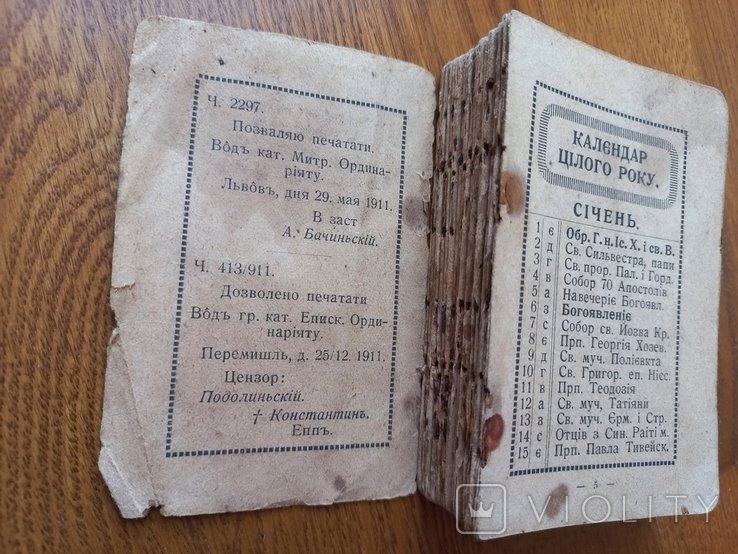 Ч. 2297.
Позваляю печатати.
Вôдъ кат. Митр. Ордина-
ріяту.
Львôвъ, дня 29. мая 1911.
В заст
А. Бачиньскій.
Ч. 413/911.
Дозволено печатати
Вôдъ гр. кат. Еписк. Орди-
наріяту.
Перемишль, д. 25/12. 1911.
Цензор:
Подолиньскій.
† Константинъ.
Еппъ.
КАЛЄНДАР
ЦІЛОГО РОКУ.
СІЧЕНЬ.
1 є Обр. Г. н. Іс. Х. і св. В.
2 д Св. Сильвестра, папи
3 г Св. прор. Пал. і Горд.
4 в Собор 70 Апостолів
5 а Навечеріє Богоявл.
6 з Богоявленіє
7 с Собор св. Йозва Кр.
8 є Прп. Георгія Хозев.
9 д Св. муч. Полієвкта
10 г Св. Григор. еп. Ніес.
11 в Прп. Теодозія
12 а Св. муч. Татіяни
13 з Св. муч. Єрм. і Стр.
14 с Отців з Син. Раїті м.
15 є Прп. Павла Тивейск.
— 5 —
VIOLITY